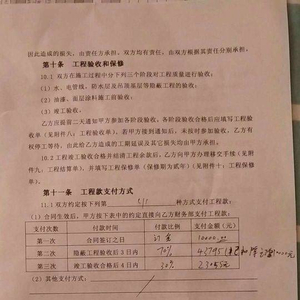 因此造成的损失，由责任方承担。双方均有责任，由双方根据其责任分别承担。
第十条 工程验收和保修
10.1 双方在施工过程中分下列三个阶段对工程质量进行验收：
（1）水、电管线、防水层及吊顶基层等隐蔽工程的验收；
（2）油漆、面层涂料施工前验收；
（3）竣工验收。
乙方应提前二天通知甲方参加各阶段验收，各阶段验收合格后应填写工程验收单（见附件八：工程验收单）。若甲方接到通知后，未按时参加验收，乙方有
权停工等待，由此给乙方造成的工期延误及其它损失均由甲方承担。
10.2 工程竣工验收合格并结清工程余款后，乙方向甲方办理移交手续（见附
件九：工程结算单），并填写工程保修单（保修期为贰年）（见附件十：工程保修
单）。
第十一条 工程款支付方式
11.1 双方约定按下列第 (1) 种方式支付工程款：
（1）合同生效后，甲方按下表中的约定直接向乙方财务部支付工程款：
支付次数 付款时间 付款比例 支付金额（元）
第一次 合同签订之日 订金
第二次 隐蔽工程验收后3日内 70%
第三次 竣工验收合格后4日 30%
（2）其他支付方式：